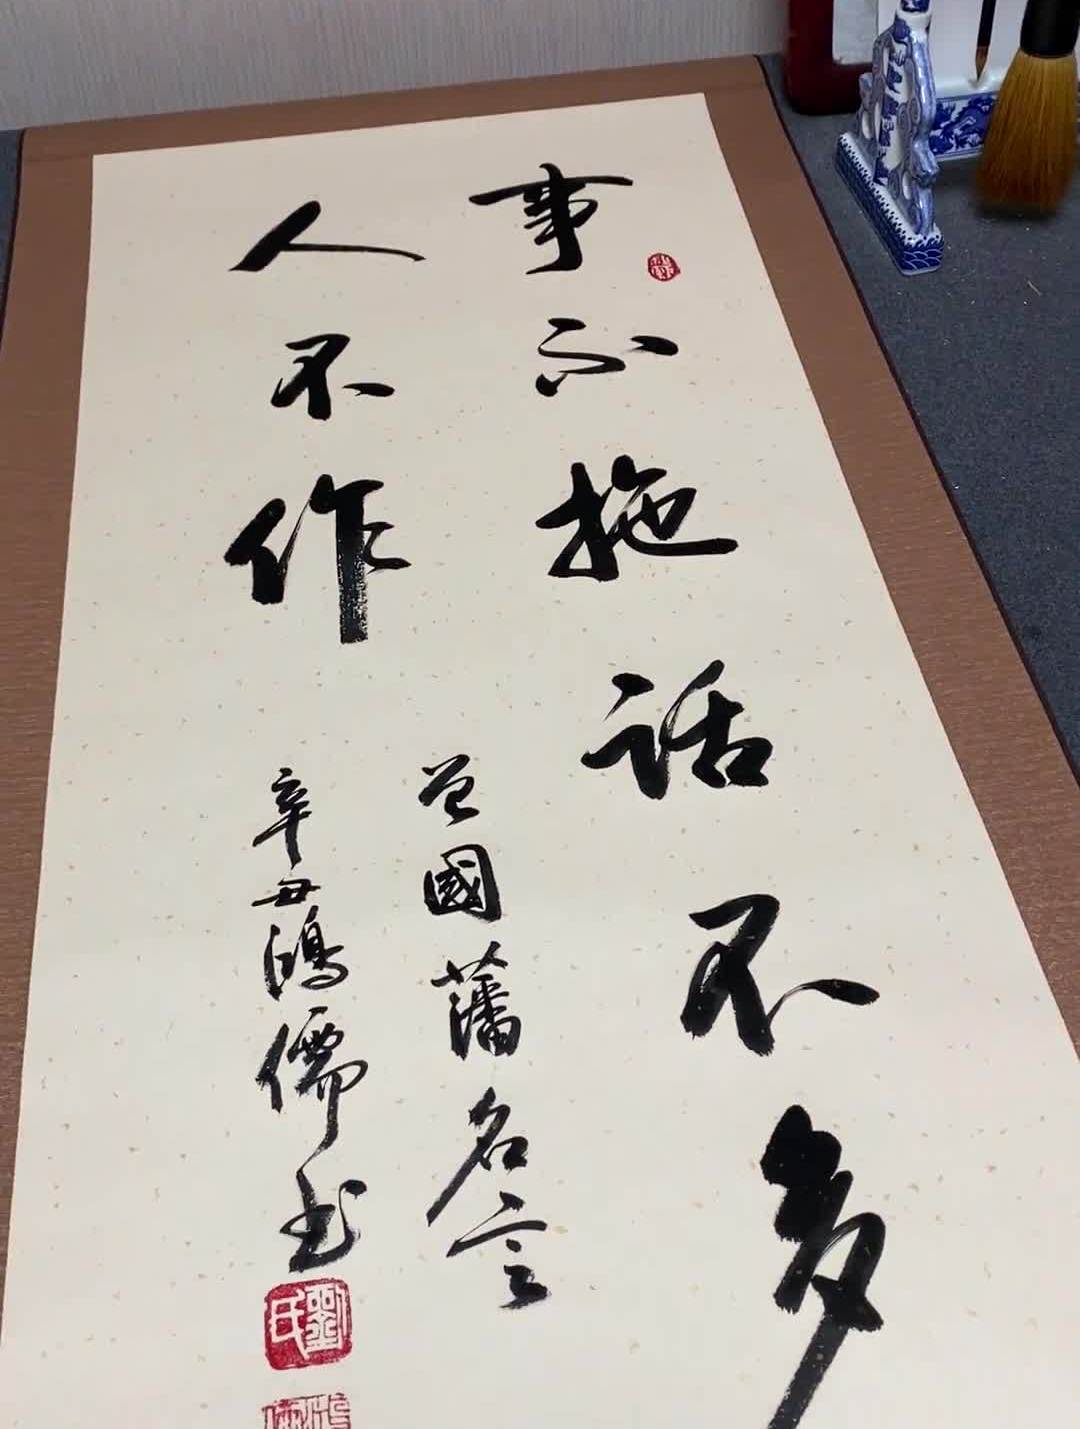 事不拖话不多
人不作
曾國藩名言
辛丑鴻儒书
劉氏